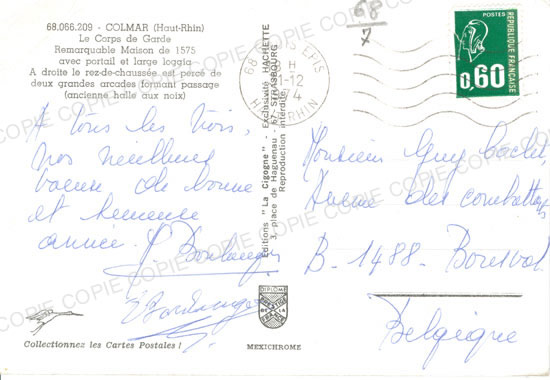 68.066.209 - COLMAR (Haut-Rhin)
Le Corps de Garde
Remarquable Maison de 1575
avec portail et large loggia
A droite le rez-de-chaussée est percé de
deux grandes arcades formant passage
(ancienne halle aux noix)
A tous les trois,
nos meilleurs
voeux de bonne
et heureuse
année.
P. Boulanger
Boulanger
Collectionnez les Cartes Postales !
Editions "La Cigogne" - Exclusivité HACHETTE
3, place de Haguenau - 67-STRASBOURG
Reproduction interdite
DIPLOME
PRESTIGE
DE LA
FRANCE
MEXICHROME
68
EPIS
H
1-12
RHIN
68
POSTES
0,60
REPUBLIQUE FRANÇAISE
Monsieur Guy Bachet,
Avenue des combattants
B-1488-Bousval
Belgique
COPIE COPIE COPIE COPIE